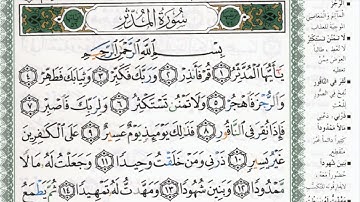 سُورَةُ الْمُدَّثِّرِ
بِسْمِ اللَّهِ الرَّحْمَٰنِ الرَّحِيمِ
يَٰأَيُّهَا الْمُدَّثِّرُ ١ قُمْ فَأَنذِرْ ٢ وَرَبَّكَ فَكَبِّرْ ٣ وَثِيَابَكَ فَطَهِّرْ ٤
وَالرُّجْزَ فَاهْجُرْ ٥ وَلَا تَمْنُن تَسْتَكْثِرُ ٦ وَلِرَبِّكَ فَاصْبِرْ ٧
فَإِذَا نُقِرَ فِي النَّاقُورِ ٨ فَذَٰلِكَ يَوْمَئِذٍ يَوْمٌ عَسِيرٌ ٩ عَلَى الْكَٰفِرِينَ
غَيْرُ يَسِيرٍ ١٠ ذَرْنِي وَمَنْ خَلَقْتُ وَحِيدًا ١١ وَجَعَلْتُ لَهُ مَالًا
مَّمْدُودًا ١٢ وَبَنِينَ شُهُودًا ١٣ وَمَهَّدتُّ لَهُ تَمْهِيدًا ١٤ ثُمَّ يَطْمَعُ